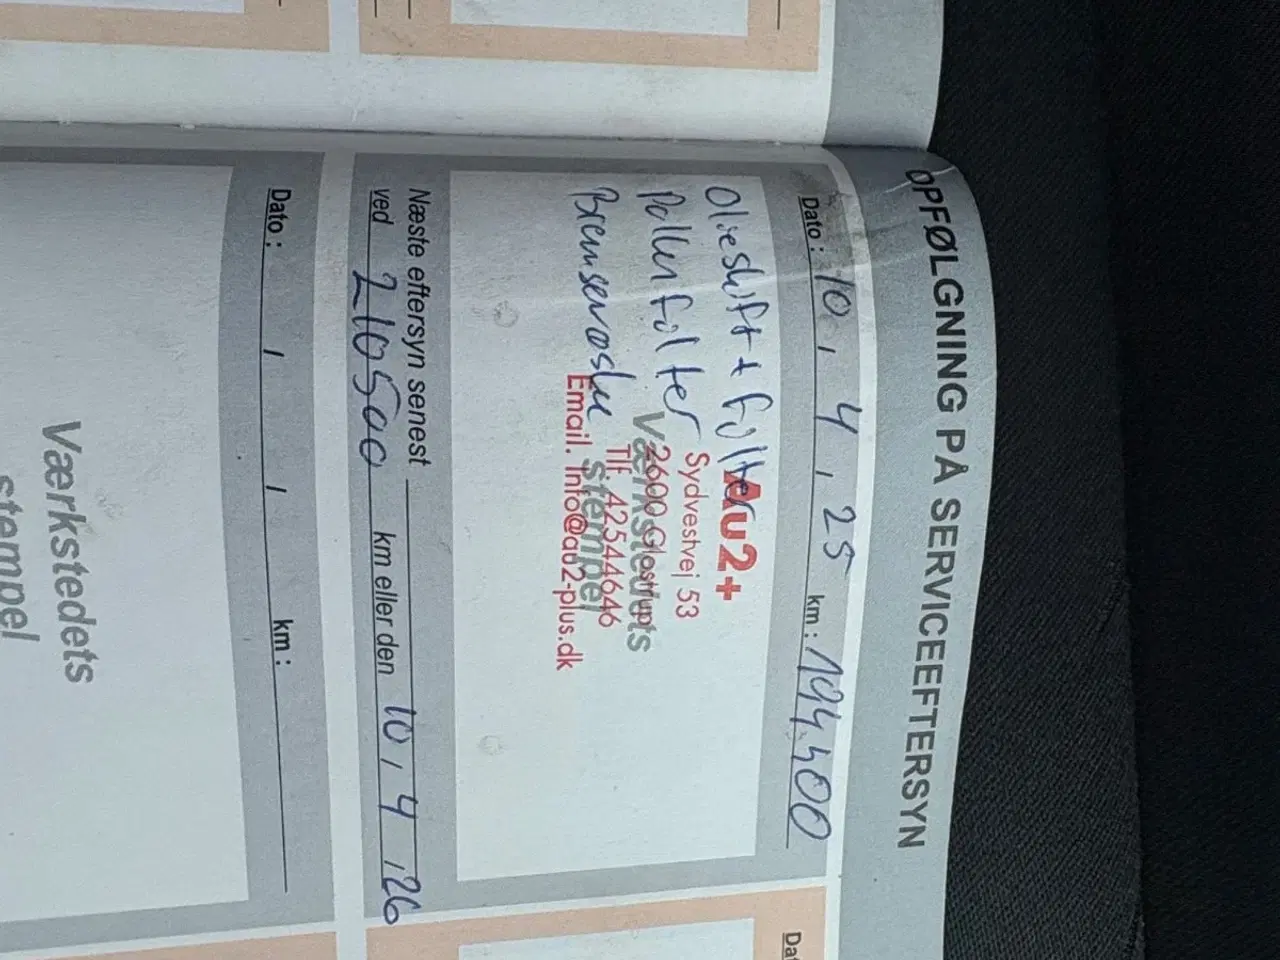 OPFØLGNING PÅ SERVICEEFTERSYN
Dato : 10 , 4 , 25 km : 194.400
Olieskift + filter
Pollenfilter
Bremsevæske
Au2+
Sydvestvej 53
2600 Glostrup
Tlf. 42544646
Email. Info@au2-plus.dk
Værkstedets
stempel
Næste eftersyn senest
ved 210500 km eller den 10 , 4 , 26
Dato : / / km :
Værkstedets
stempel